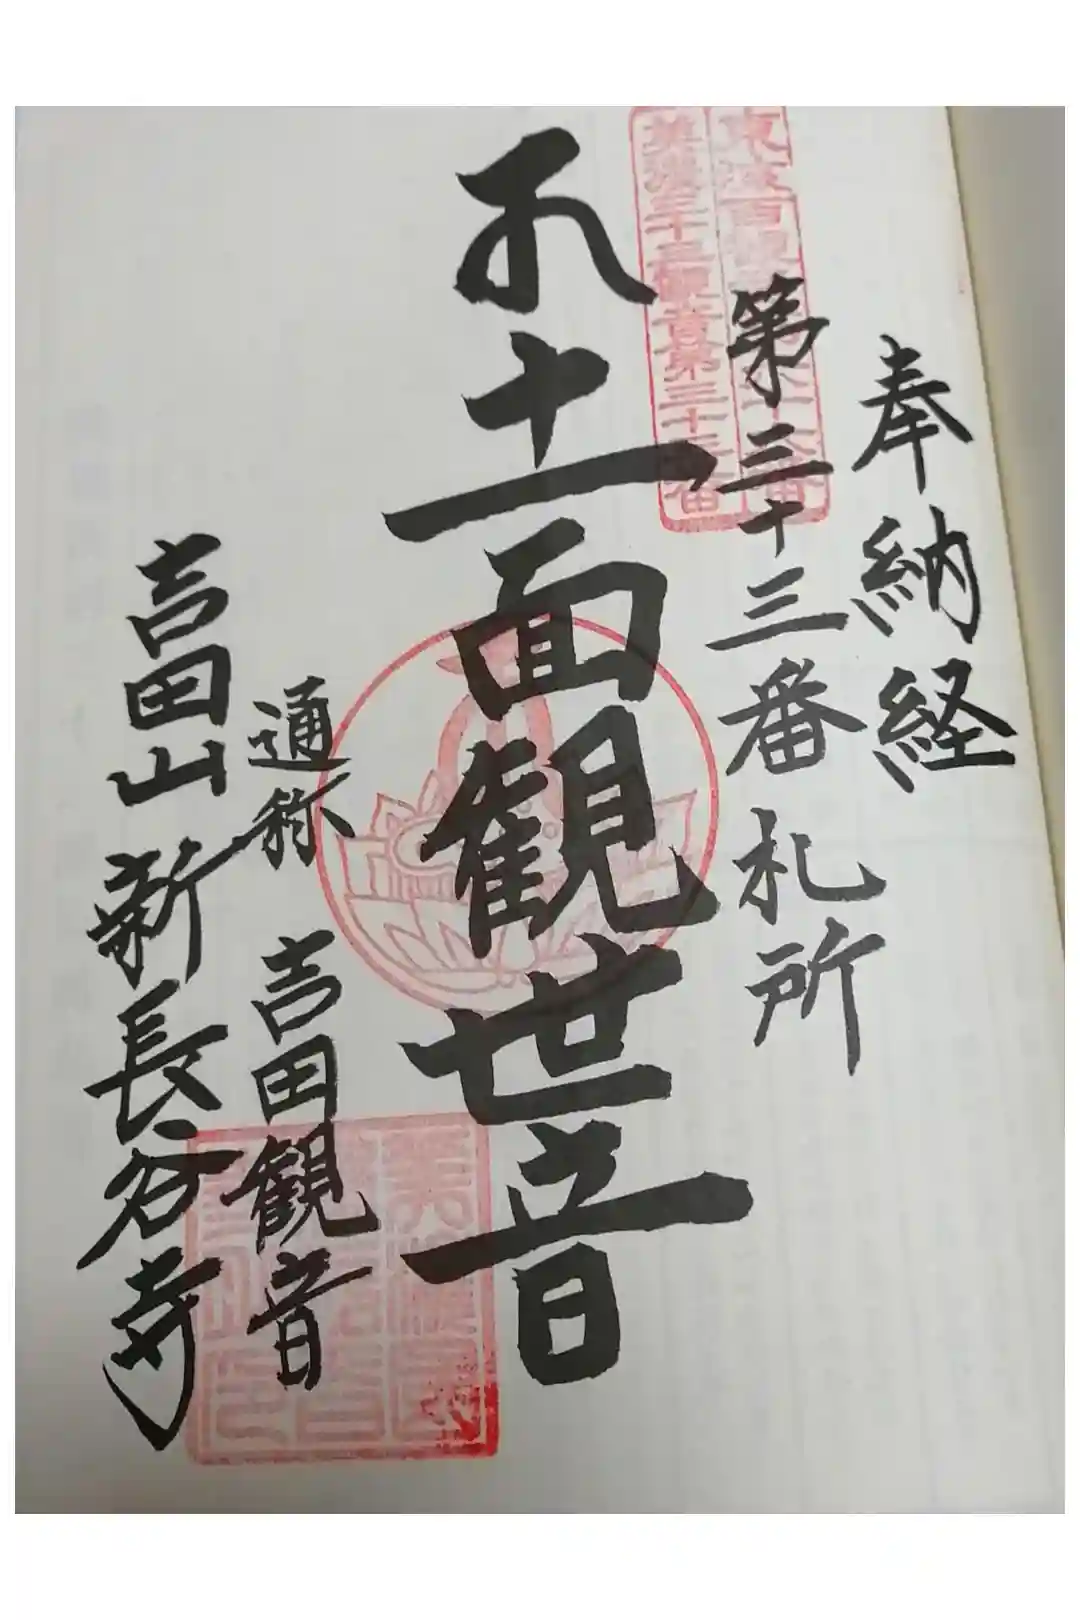 奉納経
美濃三十三観音第三十三番
第三十三番札所
十一面観世音
通称 吉田観音
吉田山 新長谷寺